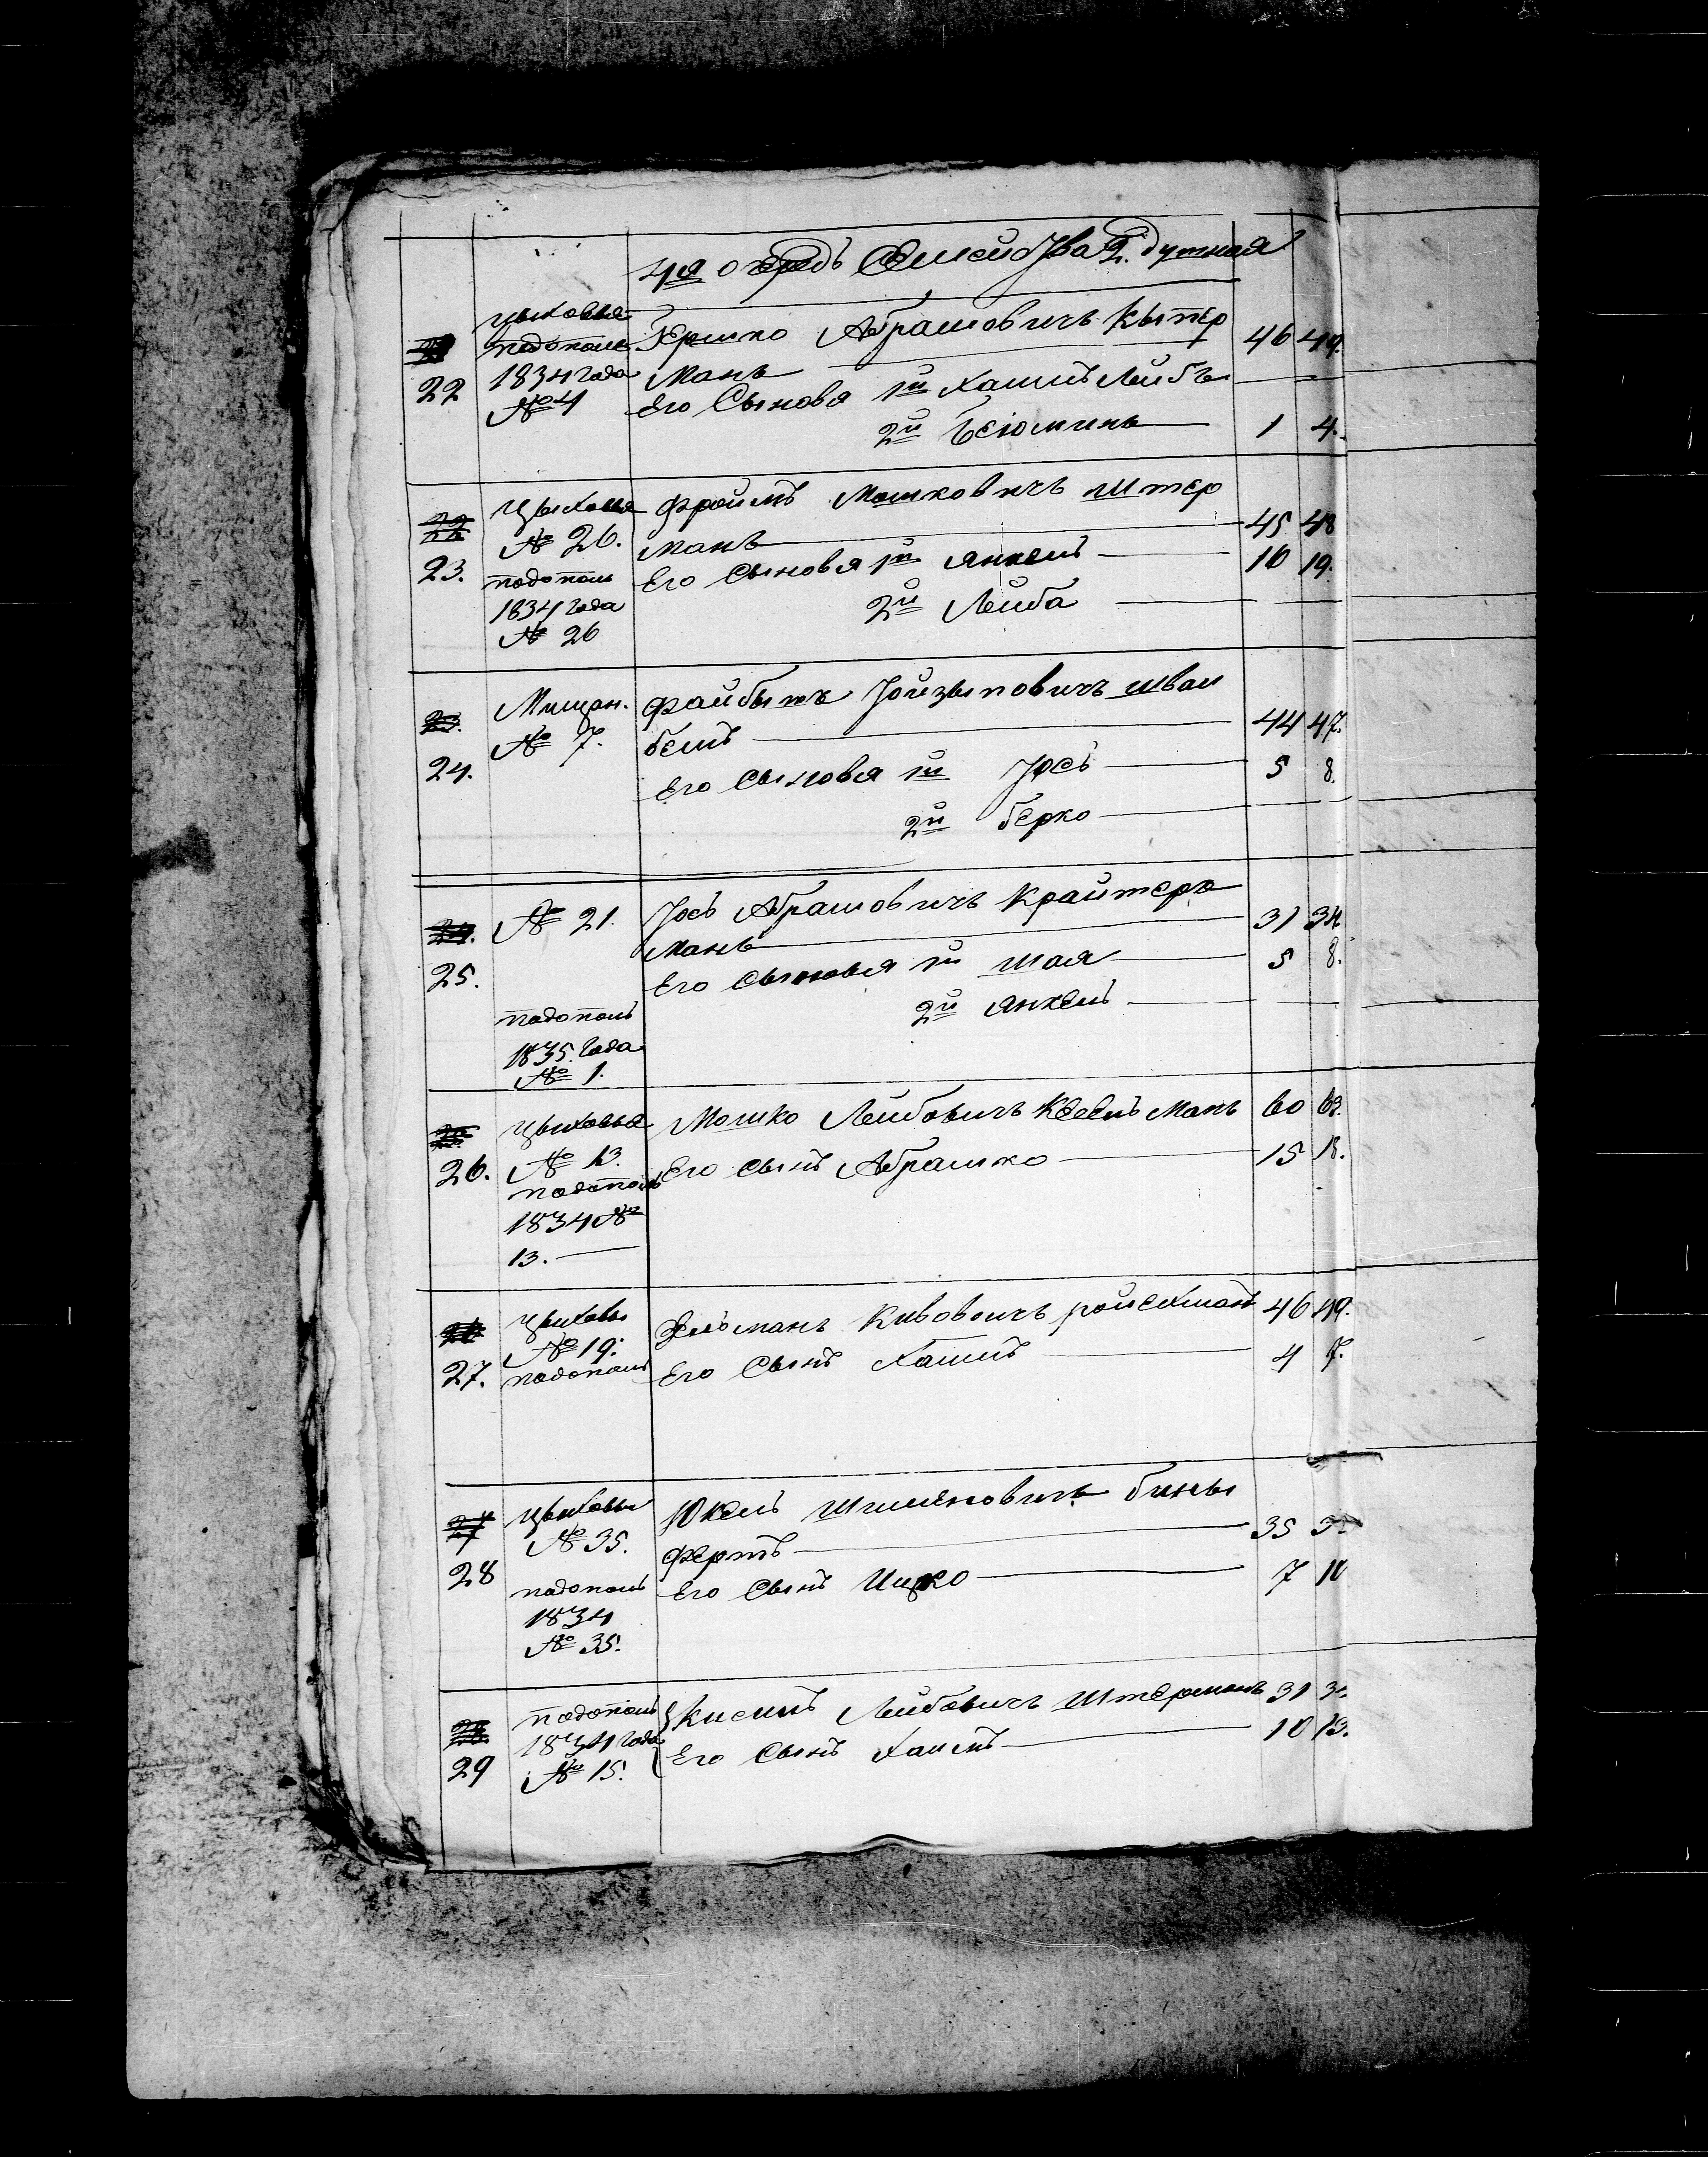 4я очередь Семейства 2. душная
22
цыховыя
подополн
1834 года
№ 4
Гершко Абрамовичъ Кытер
манъ 46 49.
Его Сыновя 1й Хаимъ Лейбъ
2й Беюминъ 1 4.
22
23.
Цыховыя
№ 26.
подополн
1834 года
№ 26
Фроимъ Мошковичъ Штер
манъ 45 48
Его Сыновя 1й Янкель 16 19.
2й Лейба
23.
24.
Мищан.
№ 7.
Файбышъ Йойзыповичъ шваи
бель 44 47.
Его Сыновя 1й Іось 5 8.
2й берко
24.
25.
№ 21.
подополн
1835 года
№ 1.
Іось Абрамовичъ Крайтеръ
манъ 31 34.
Его Сыновя 1й шая 5 8.
2й Янкель
26.
цыховыя
№ 13.
подополн
1834 №
13.
Мошко Лейбовичъ Кесельманъ 60 63.
Его Сынъ Абрамко 15 18.
27.
цыховы
№ 19.
подополн
Зельманъ Кивовичъ ройсхманъ 46 49.
Его Сынъ Хаимъ 4 7.
27
28
цыховы
№ 35.
подополн
1834
№ 35.
Юкель Шимоновичъ бины
фертъ 35
Его Сынъ Ицко 7 10
28
29
подополн
1834 года
№ 15.
Кисиль Лейбовичъ Штерманъ 31
Его Сынъ Хаимъ 10 13.